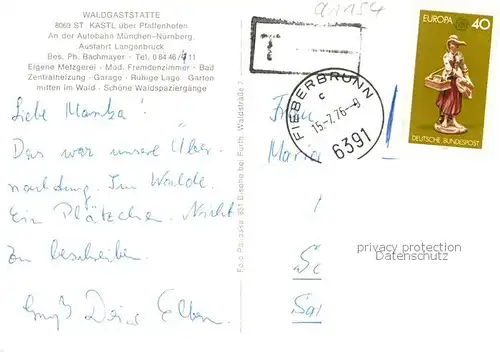 WALDGASTSTÄTTE
8069 ST. KASTL über Pfaffenhofen
An der Autobahn München-Nürnberg,
Ausfahrt Langenbruck
Bes. Ph. Bachmayer - Tel. 0 84 46/411
Eigene Metzgerei - Mod. Fremdenzimmer - Bad
Zentralheizung - Garage - Ruhige Lage - Garten
mitten im Wald - Schöne Waldspaziergänge
Liebe
Das war unsere Über-
nachtung. Im Walde.
Ein Plätzchen. Nicht
zu beschreiben.
Gruß Deine
T
FIEBERBRUNN
c
15.-7.76-8
6391
EUROPA 40
DEUTSCHE BUNDESPOST
Frau
Maria
privacy protection
Datenschutz